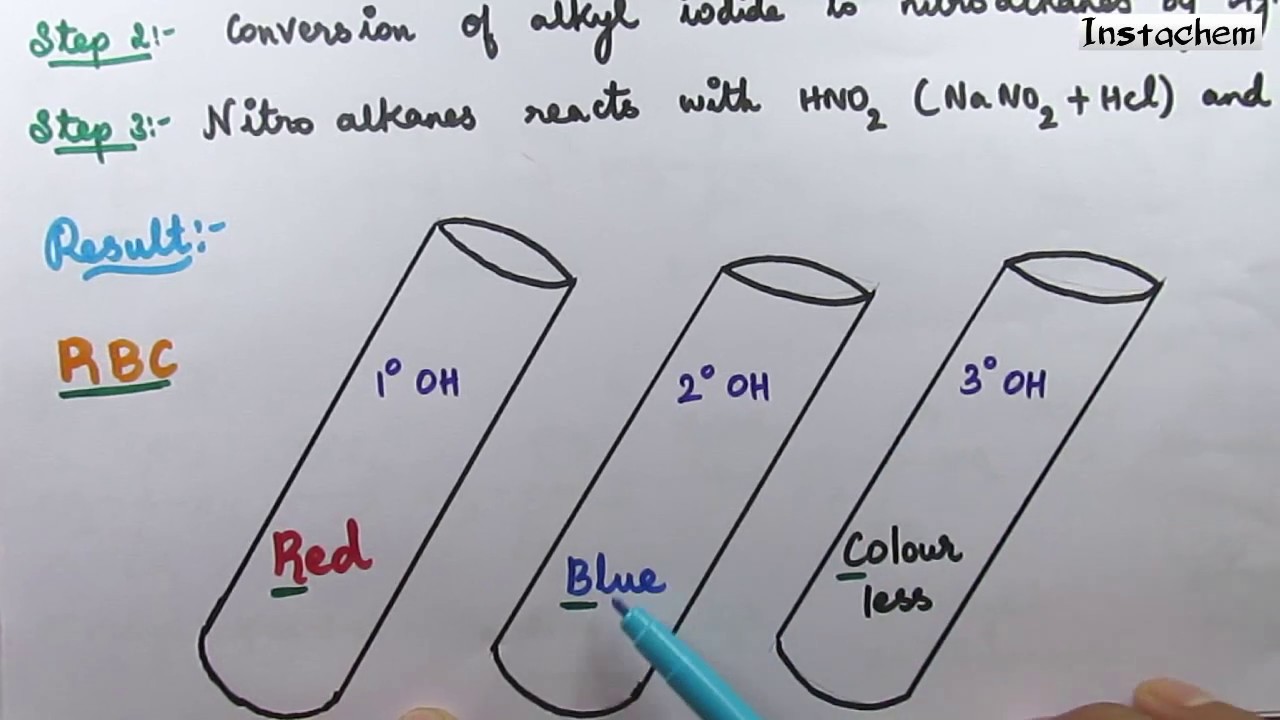 Step 2:- Conversion of alkyl iodide to nitroalkanes by Ag
Instachem
Step 3:- Nitro alkanes reacts with HNO₂ (NaNO₂ + Hcl) and
Result:-
RBC
1° OH 2° OH 3° OH
Red Blue Colour
less